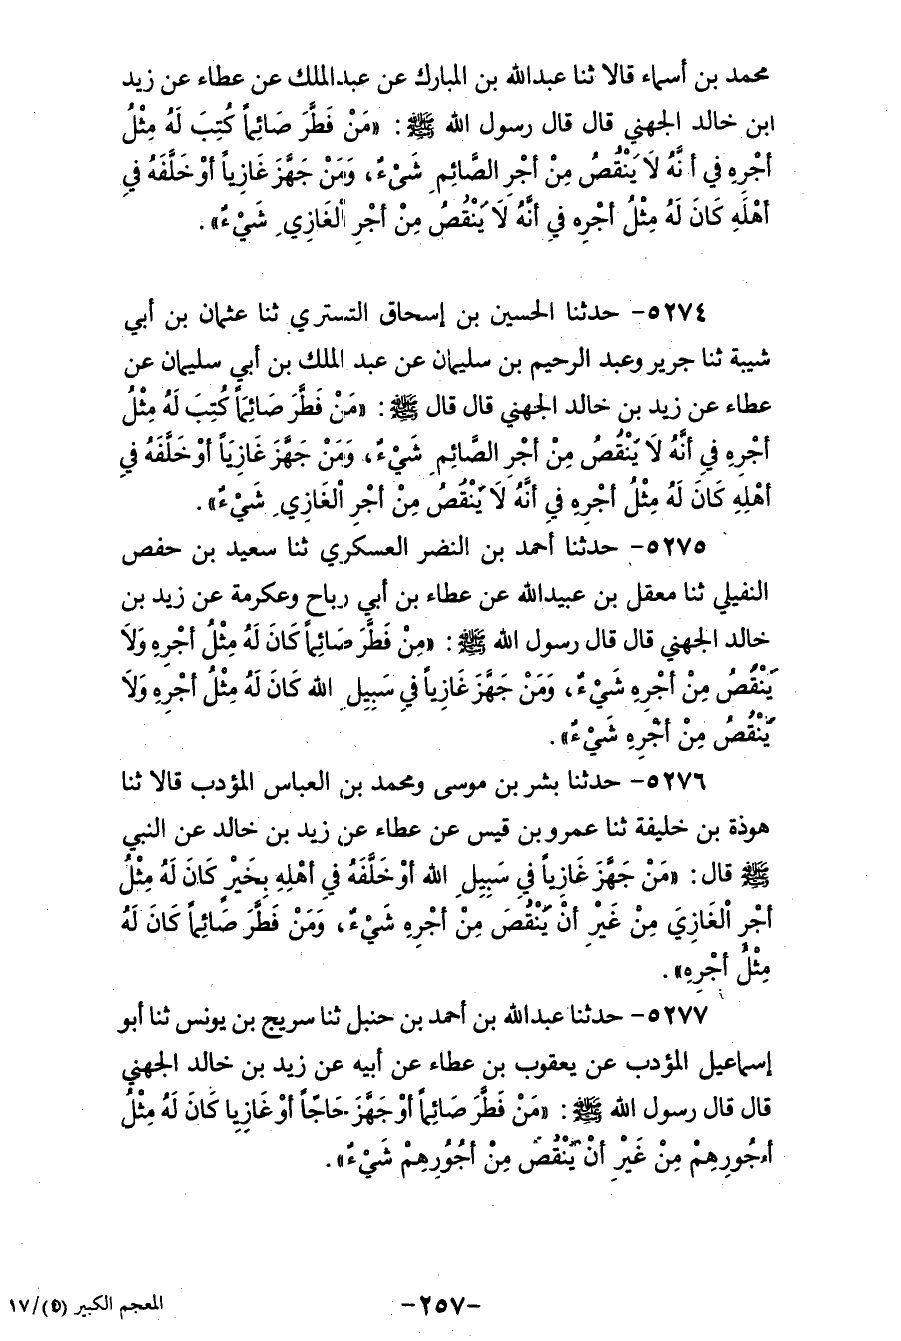 محمد بن أسماء قالا ثنا عبدالله بن المبارك عن عبدالملك عن عطاء عن زيد
ابن خالد الجهني قال قال رسول الله ﷺ : «مَنْ فَطَّرَ صَائِماً كُتِبَ لَهُ مِثْلُ
أَجْرِهِ فِي أَنَّهُ لَا يَنْقُصُ مِنْ أَجْرِ الصَّائِمِ شَيْءٌ، وَمَنْ جَهَّزَ غَازِياً أَوْ خَلَّفَهُ فِي
أَهْلِهِ كَانَ لَهُ مِثْلُ أَجْرِهِ فِي أَنَّهُ لَا يَنْقُصُ مِنْ أَجْرِ الْغَازِي شَيْءٌ» .
٥٢٧٤- حدثنا الحسين بن إسحاق التستري ثنا عثمان بن أبي
شيبة ثنا جرير وعبد الرحيم بن سليمان عن عبد الملك بن أبي سليمان عن
عطاء عن زيد بن خالد الجهني قال قال ﷺ : «مَنْ فَطَّرَ صَائِمَاً كُتِبَ لَهُ مِثْلُ
أَجْرِهِ فِي أَنَّهُ لَا يَنْقُصُ مِنْ أَجْرِ الصَّائِمِ شَيْءٌ، وَمَنْ جَهَّزَ غَازِيَاً أَوْ خَلَّفَهُ فِي
أَهْلِهِ كَانَ لَهُ مِثْلُ أَجْرِهِ فِي أَنَّهُ لَا يَنْقُصُ مِنْ أَجْرِ الْغَازِي شَيْءٌ» .
٥٢٧٥- حدثنا أحمد بن النضر العسكري ثنا سعيد بن حفص
النفيلي ثنا معقل بن عبيدالله عن عطاء بن أبي رباح وعكرمة عن زيد بن
خالد الجهني قال قال رسول الله ﷺ : «مِنْ فَطَّرَ صَائِماً كَانَ لَهُ مِثْلُ أَجْرِهِ وَلَا
يَنْقُصُ مِنْ أَجْرِهِ شَيْءٌ، وَمَنْ جَهَّزَ غَازِياً فِي سَبِيلِ الله كَانَ لَهُ مِثْلُ أَجْرِهِ وَلَا
يَنْقُصُ مِنْ أَجْرِهِ شَيْءٌ» .
٥٢٧٦- حدثنا بشر بن موسى ومحمد بن العباس المؤدب قالا ثنا
هوذة بن خليفة ثنا عمرو بن قيس عن عطاء عن زيد بن خالد عن النبي
ﷺ قال : «مَنْ جَهَّزَ غَازِياً فِي سَبِيلِ الله أَوْ خَلَّفَهُ فِي أَهْلِهِ بِخَيْرٍ كَانَ لَهُ مِثْلُ
أَجْرِ الْغَازِيَ مِنْ غَيْرِ أَنْ يَنْقُصَ مِنْ أَجْرِهِ شَيْءٌ، وَمَنْ فَطَّرَ صَائِماً كَانَ لَهُ
مِثْلُ أَجْرِهِ» .
٥٢٧٧- حدثنا عبدالله بن أحمد بن حنبل ثنا سريج بن يونس ثنا أبو
إسماعيل المؤدب عن يعقوب بن عطاء عن أبيه عن زيد بن خالد الجهني
قال قال رسول الله ﷺ : «مَنْ فَطَّرَ صَائِماً أَوْ جَهَّزَ حَاجّاً أَوْ غَازِيا كَانَ لَهُ مِثْلُ
أُجُورِهِمْ مِنْ غَيْرِ أَنْ يَنْقُصَ مِنْ أُجُورِهِمْ شَيْءٌ» .
-٢٥٧-
المعجم الكبير (٥)/١٧